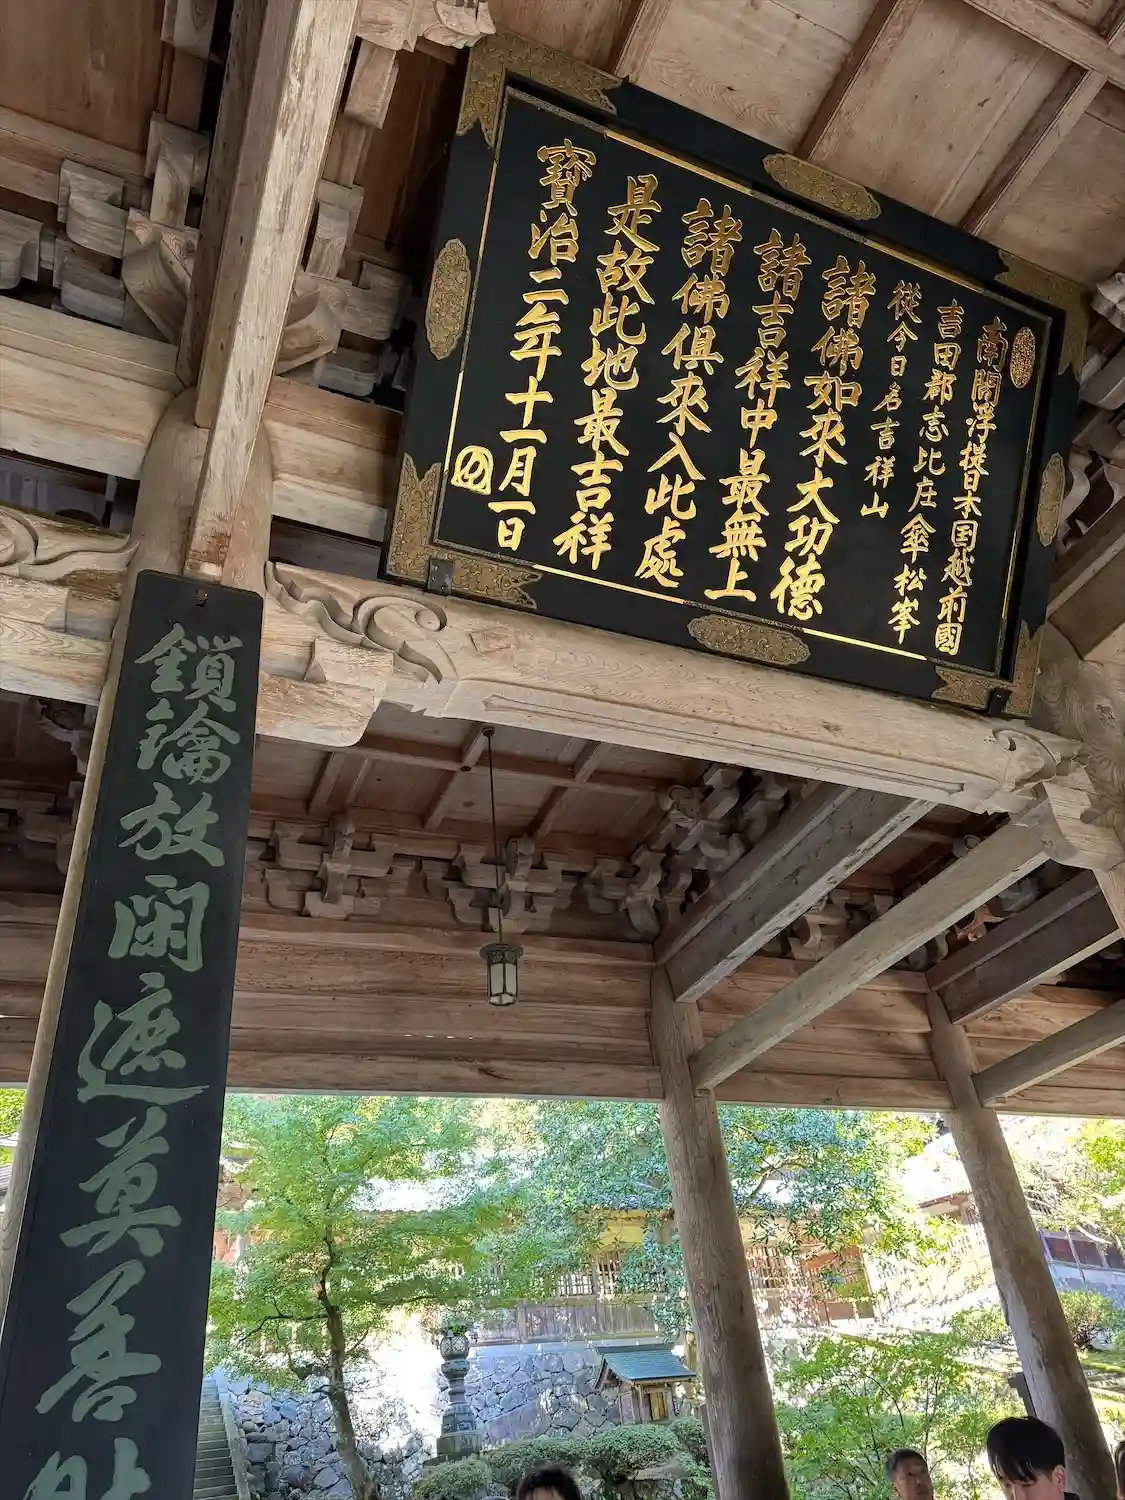 南閻浮提日本国越前國
吉田郡志比庄傘松峯
從今日名吉祥山
諸佛如來大功德
諸吉祥中最無上
諸佛俱來入此處
是故此地最吉祥
寳治二年十一月一日
鎖鑰放閑遮莫善財